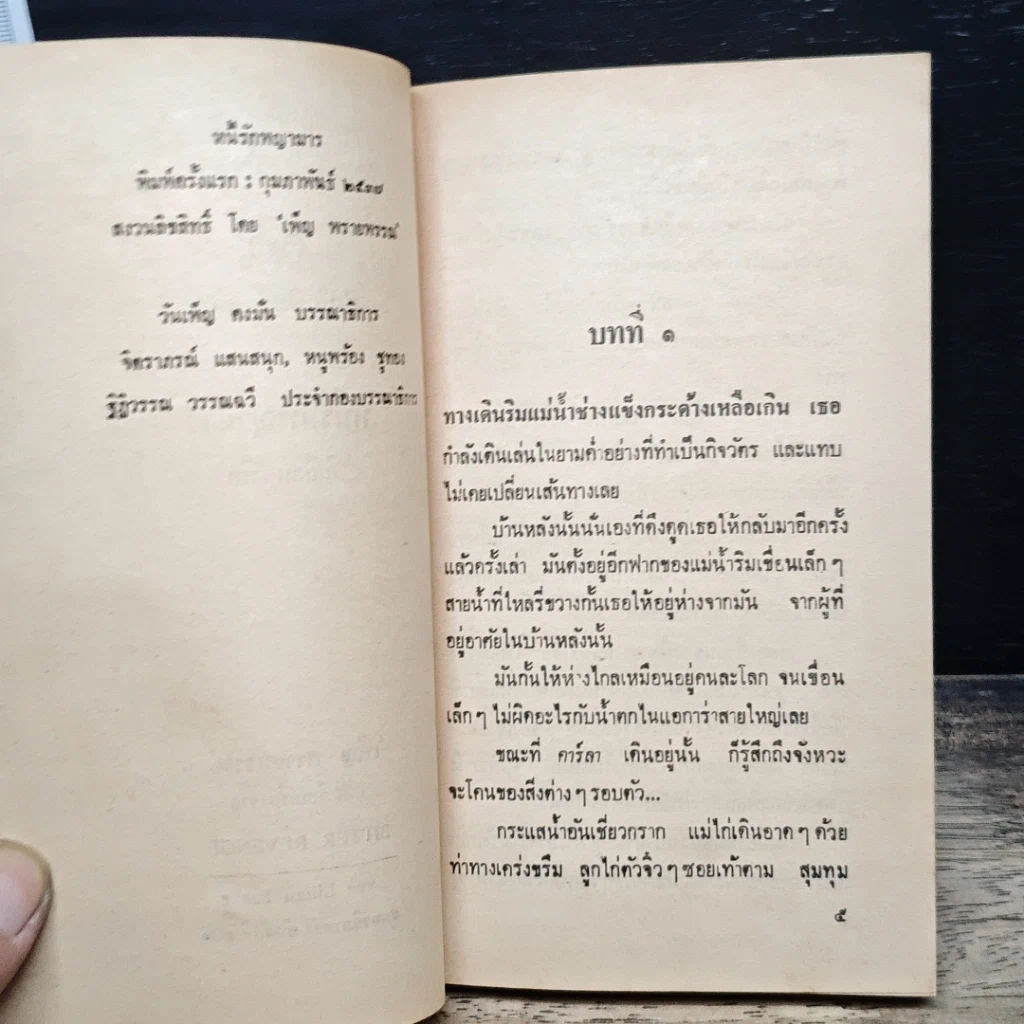 หนี้รักพญามาร
พิมพ์ครั้งแรก : กุมภาพันธ์ ๒๕๓๗
สงวนลิขสิทธิ์ โดย 'เพ็ญ พรายพรรณ'
วันเพ็ญ คงมั่น บรรณาธิการ
จิตราภรณ์ แสนสนุก, หนูพร้อง ชูทอง
ฐิฏิวรรณ วรรณฉวี ประจำกองบรรณาธิการ
บทที่ ๑
ทางเดินริมแม่น้ำช่างแข็งกระด้างเหลือเกิน เธอ
กำลังเดินเล่นในยามค่ำอย่างที่ทำเป็นกิจวัตร และแทบ
ไม่เคยเปลี่ยนเส้นทางเลย
บ้านหลังนั้นนั่นเองที่ดึงดูดเธอให้กลับมาอีกครั้ง
แล้วครั้งเล่า มันตั้งอยู่อีกฟากของแม่น้ำริมเขื่อนเล็ก ๆ
สายน้ำที่ไหลรี่ขวางกั้นเธอให้อยู่ห่างจากมัน จากผู้ที่
อยู่อาศัยในบ้านหลังนั้น
มันกั้นให้ห่างไกลเหมือนอยู่คนละโลก จนเขื่อน
เล็ก ๆ ไม่ผิดอะไรกับน้ำตกไนแอการ่าสายใหญ่เลย
ขณะที่ คาร์ลา เดินอยู่นั้น ก็รู้สึกถึงจังหวะ
จะโคนของสิ่งต่าง ๆ รอบตัว...
กระแสน้ำอันเชี่ยวกราก แม่ไก่เดินอาด ๆ ด้วย
ท่าทางเคร่งขรึม ลูกไก่ตัวจิ๋ว ๆ ซอยเท้าตาม สุมทุม
๕